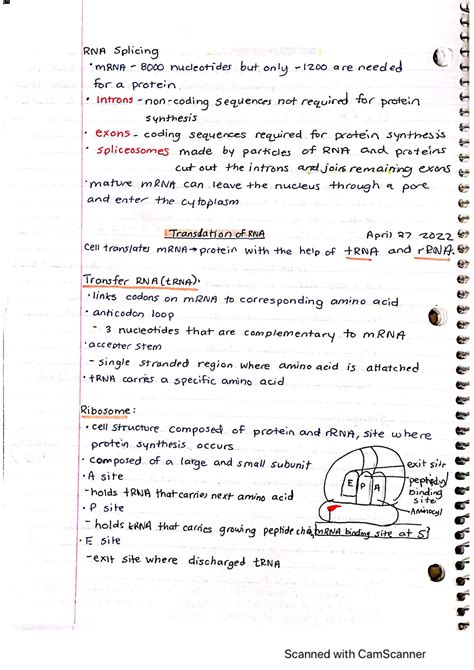 RNA Splicing
• mRNA - 8000 nucleotides but only ~1200 are needed
for a protein
• introns - non-coding sequences not required for protein
synthesis
• exons - coding sequences required for protein synthesis
• spliceosomes made by particles of RNA and proteins
cut out the introns and joins remaining exons
• mature mRNA can leave the nucleus through a pore
and enter the cytoplasm
Translation of RNA April 27 2022
Cell translates mRNA → protein with the help of tRNA and rRNA.
Transfer RNA (tRNA):
• links codons on mRNA to corresponding amino acid
• anticodon loop
- 3 nucleotides that are complementary to mRNA
• accepter stem
- single stranded region where amino acid is attatched
• tRNA carries a specific amino acid
Ribosome:
• cell structure composed of protein and rRNA, site where
protein synthesis occurs
• composed of a large and small subunit
• A site
- holds tRNA that carries next amino acid
• P site
- holds tRNA that carries growing peptide
• E site
- exit site where discharged tRNA
exit site
E P A
binding
site
Aminocyl
mRNA binding site at 5
Scanned with CamScanner